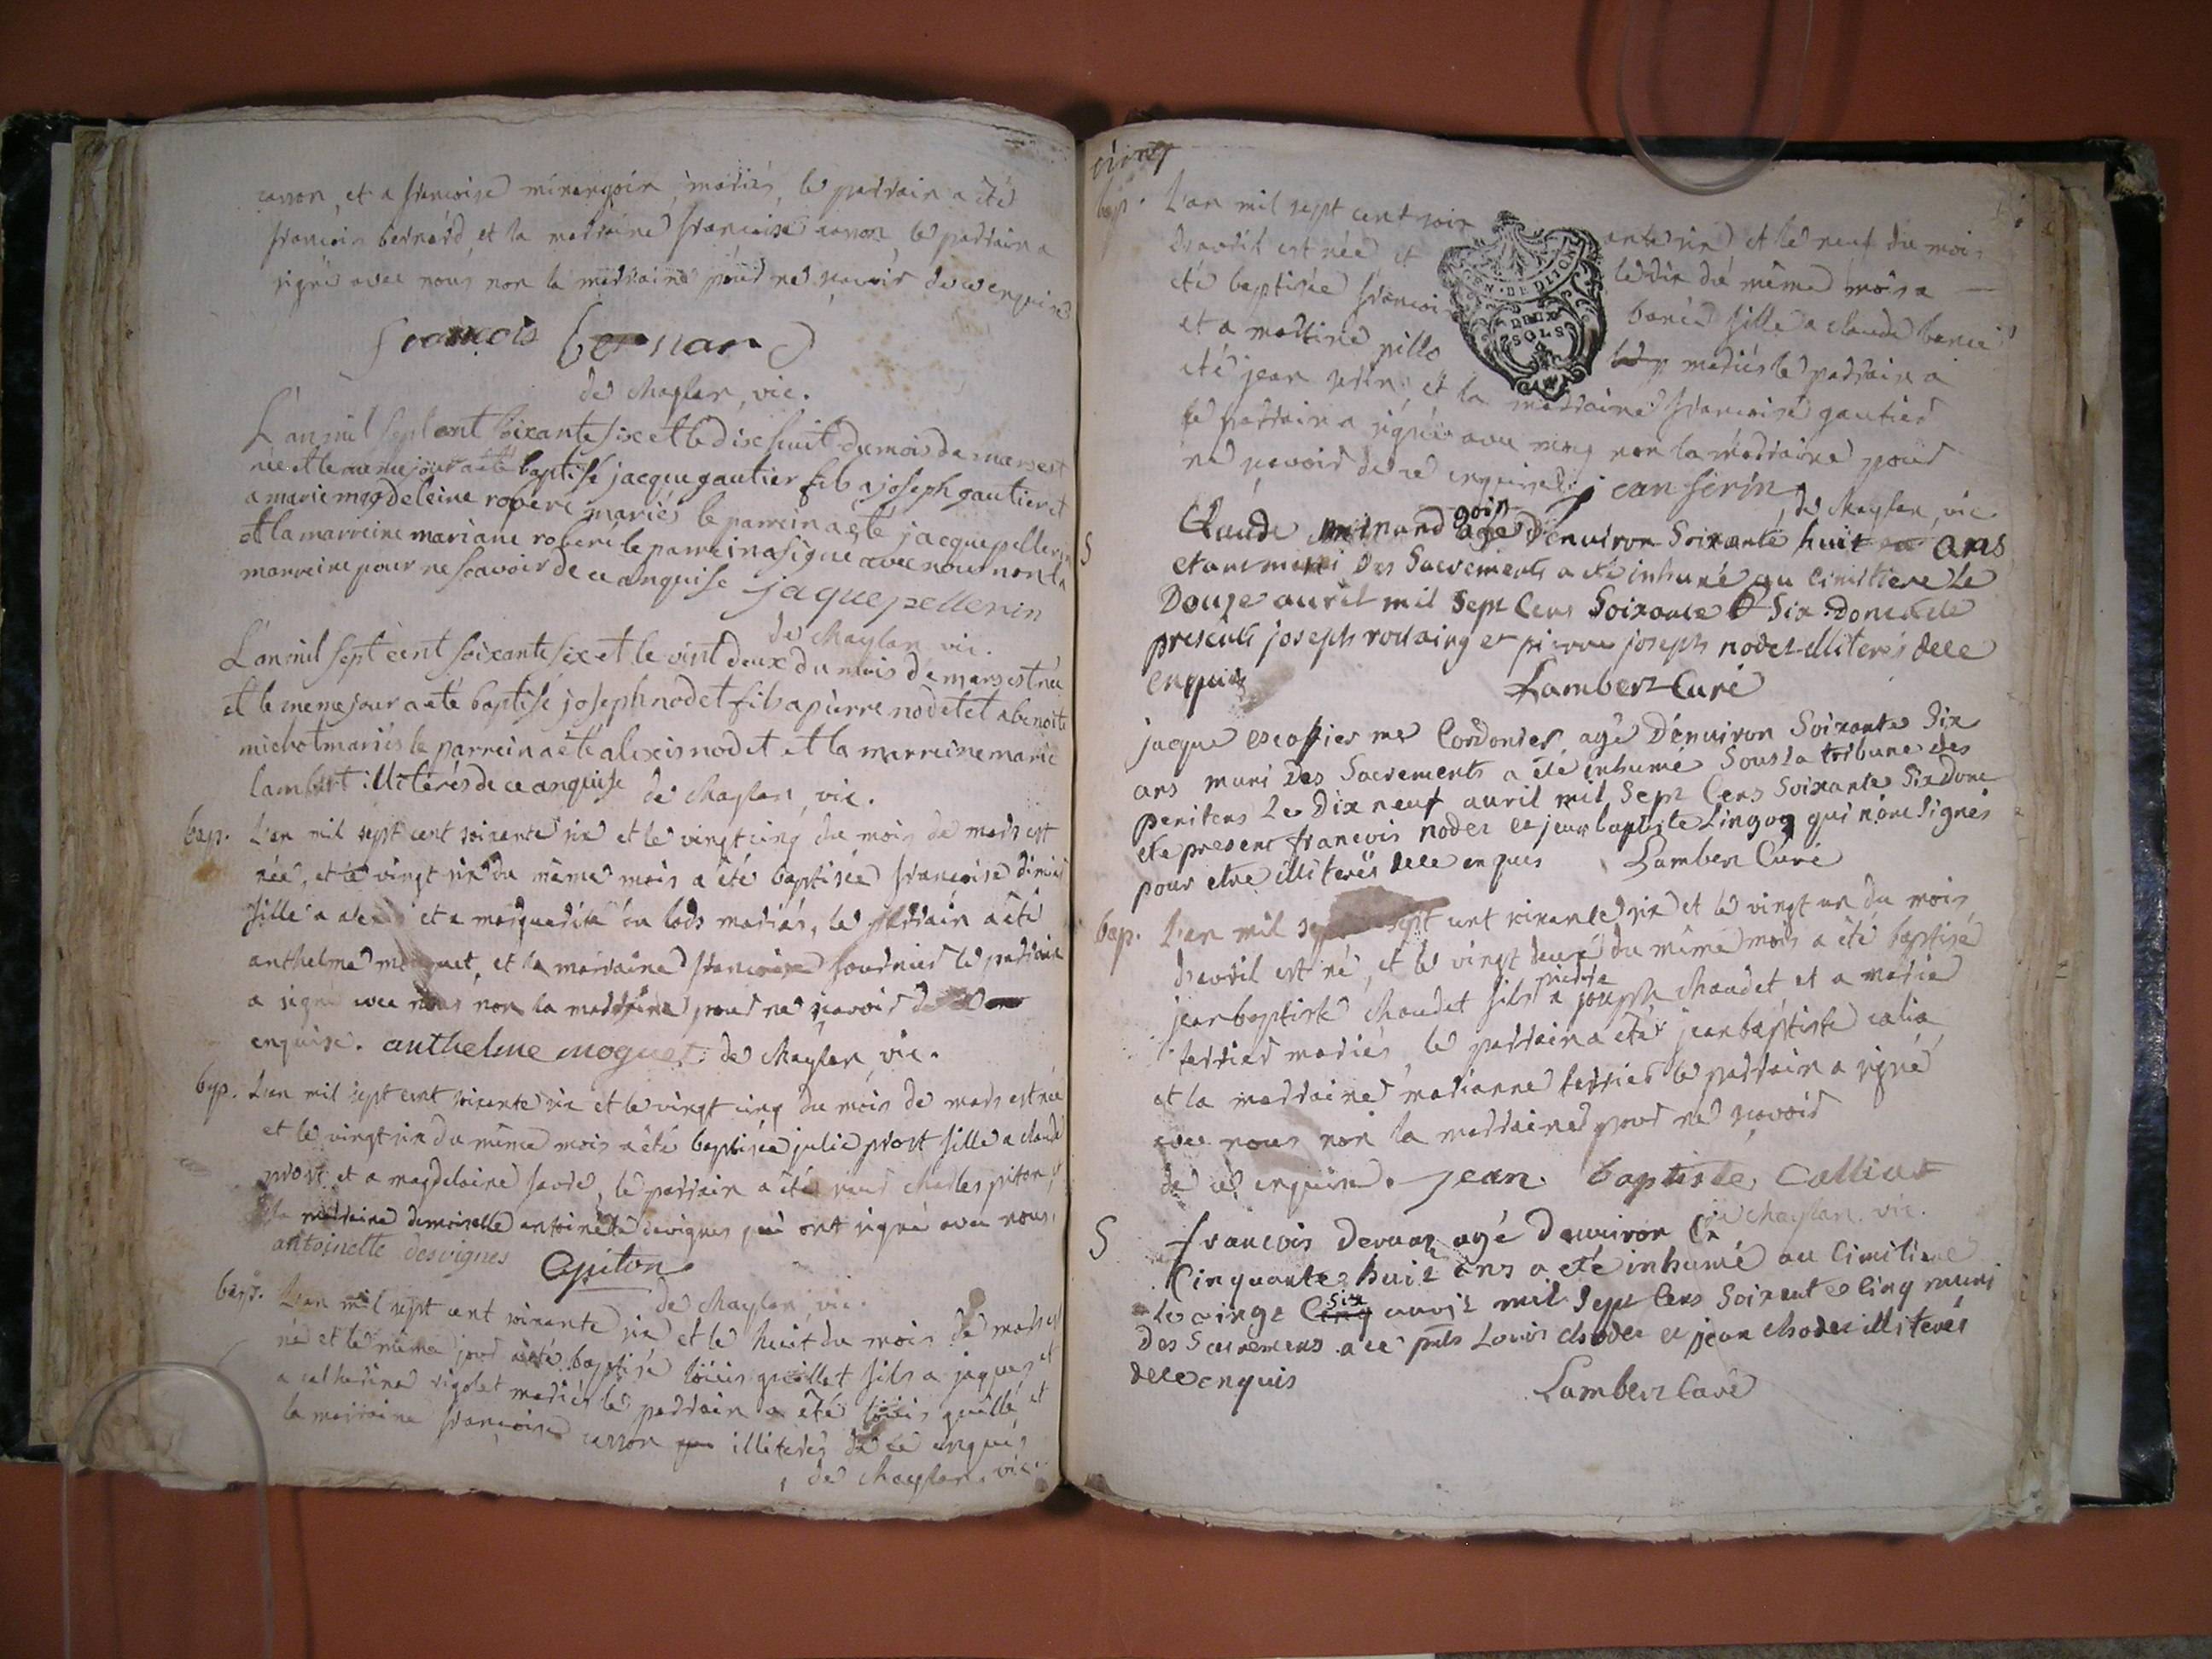 carron, et a françoise minangoin, mariés, le parrain a été
françois bernárd, et la marraine françoise carron, le parrain a
signé avec nous non la marraine pour ne sçavoir de ce enquise
francois bernar
de Maylan, vic.
L'an mil sept cent soixante six et le dix huit du mois de mars est
née et le meme jour a été baptisé jacque gautier fils a joseph gautier et
a marie magdeleine robere mariés le parrein a eté jacque pellerin
et la marreine mariane robere le parrein a signe avec nous non la
marreine pour ne scavoir de ce anquise jaque pellerin
de Maylan, vic.
L'an mil sept cent soixante six et le vint deux du mois de mars est née
et le meme jour a eté baptisé joseph nodet fils a pierre nodet et a benoite
michot mariés le parrein a eté alexis nodet et la marreine marie
lambert illiterés de ce anquise de Maylan, vic.
bap. L'an mil sept cent soixante six et le vingt cinq du mois de mars est
née, et le vingt six du même mois a été baptisée françoise
fille a et a marguerite lods mariés, le parrain a été
anthelme moguet, et la marraine françoise fournier le parrain
a signé avec nous non la marraine pour ne sçavoir de ce
enquise. anthelme moguet de Maylan, vic.
bap. L'an mil sept cent soixante six et le vingt cinq du mois de mars est née
et le vingt six du même mois a été baptisée julie prost fille a claude
prost et a magdelaine favre, le parrain a été sieur charles piton, et
la marraine demoiselle antoinette desvignes qui ont signé avec nous.
antoinette desvignes Cpiton
de Maylan, vic.
bap. L'an mil sept cent soixante six et le huit du mois de mars est
né et le même jour a été baptisé loüis guillet fils a jaques et
a catherine rigolet mariés le parrain a été loüis guillé, et
la marraine françoise carron illiterés de ce enquis
de Maylan, vic.
bap. L'an mil sept cent soixante six et le neuf du mois
d'avril est née et le dix du même mois a
été baptisée françoise fille a claude
et a martine pillo mariés le parrain a
été jean serin, et la marraine françoise gautier
le parrain a signé avec nous non la marraine pour
ne sçavoir de ce enquise. jean serin
de Maylan, vic.
S Claude minandgoin agé d'environ Soixante huit ans
et ans muni Des Sacrements a eté inhumé au Cimitiere le
Douze auril mil Sept Cens Soixante & Six. Dont été
presents joseph et pierre joseph nodet illiterés dece
enquis Lambert Curé
jacque escoffier me Cordonier, agé D'environ Soixante Six
ans muni Des Sacrements a été inhumé Sous la tribune des
penitens Le Dix neuf auril mil Sept Cens Soixante Six dont
ete present francois nodet et jean baptiste Lingog qui n'ont Signés
pour etre illiterés dece enquis Lambert Curé
bap. L'an mil sept sept cent soixante six et le vingt un du mois
d'avril est né, et le vingt deux du même mois a été baptisé
jean baptiste Maudet fils a pierre joseph Maudet et a marie
terrier mariés, le parrain a été jean baptiste calia
et la marraine marianne terrier le parrain a signé
avec nous non la marraine pour ne sçavoir
de ce enquise. jean baptiste Calliat
de Maylan. vic.
S francois agé Denviron
Cinquante huit ans a eté inhumé au Cimitiere
le vingt Cinq six auril mil Sept Cens Soixante Cinq muni
Des Sacremens a ce pnts Louis chodet et jean chodet illiterés
dece enquis Lambert Curé